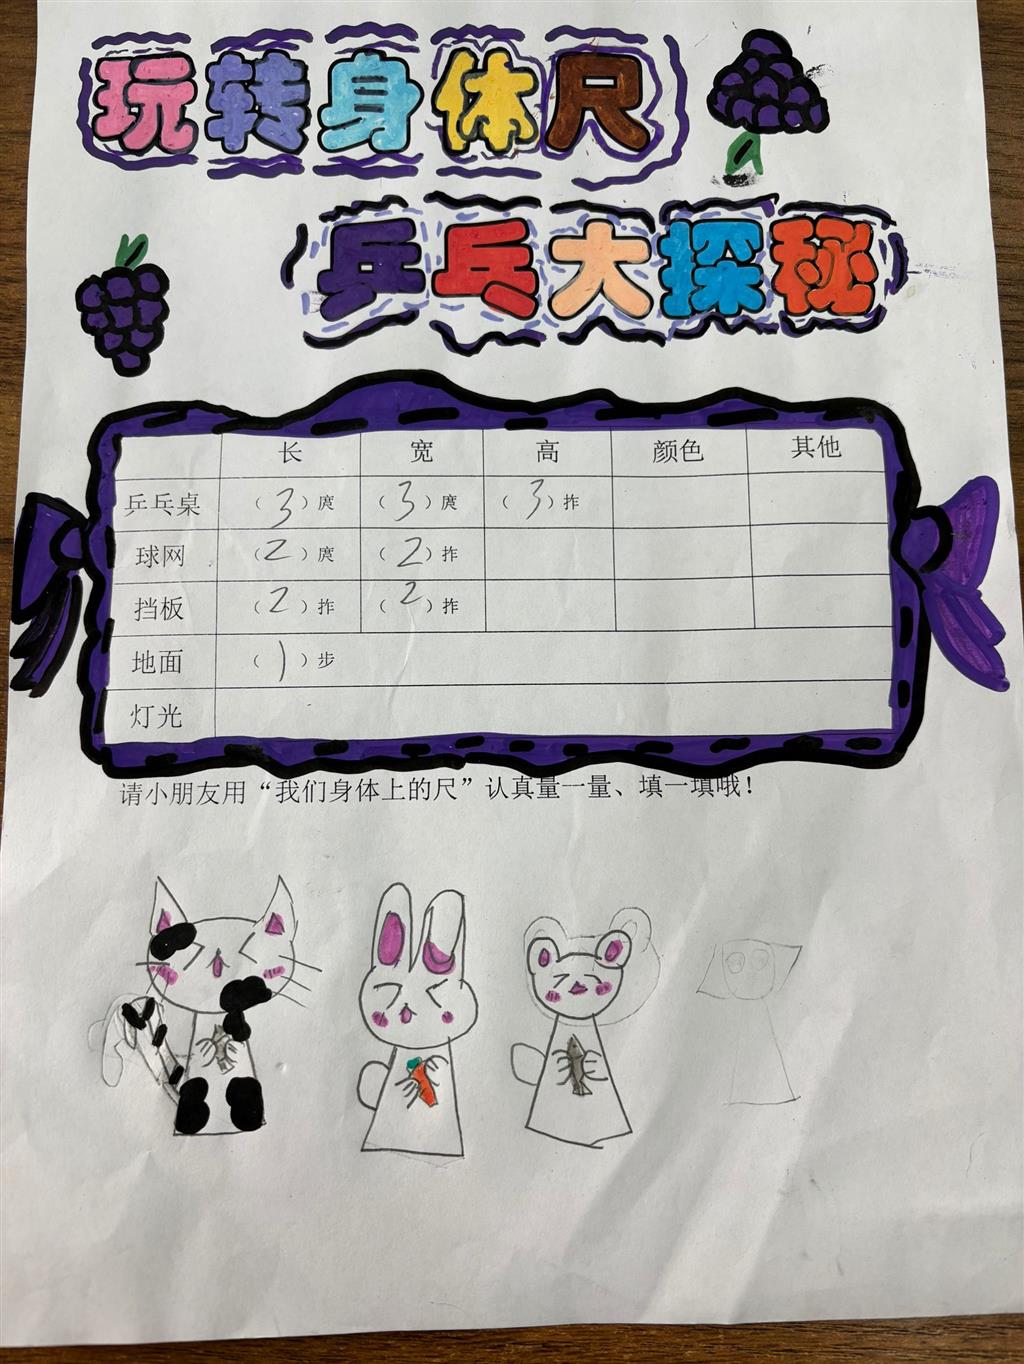 玩转身体尺
乒乓大探秘
长 宽 高 颜色 其他
乒乓桌 （3）庹 （3）庹 （3）拃
球网 （2）庹 （2）拃
挡板 （2）拃 （2）拃
地面 （1）步
灯光
请小朋友用“我们身体上的尺”认真量一量、填一填哦！